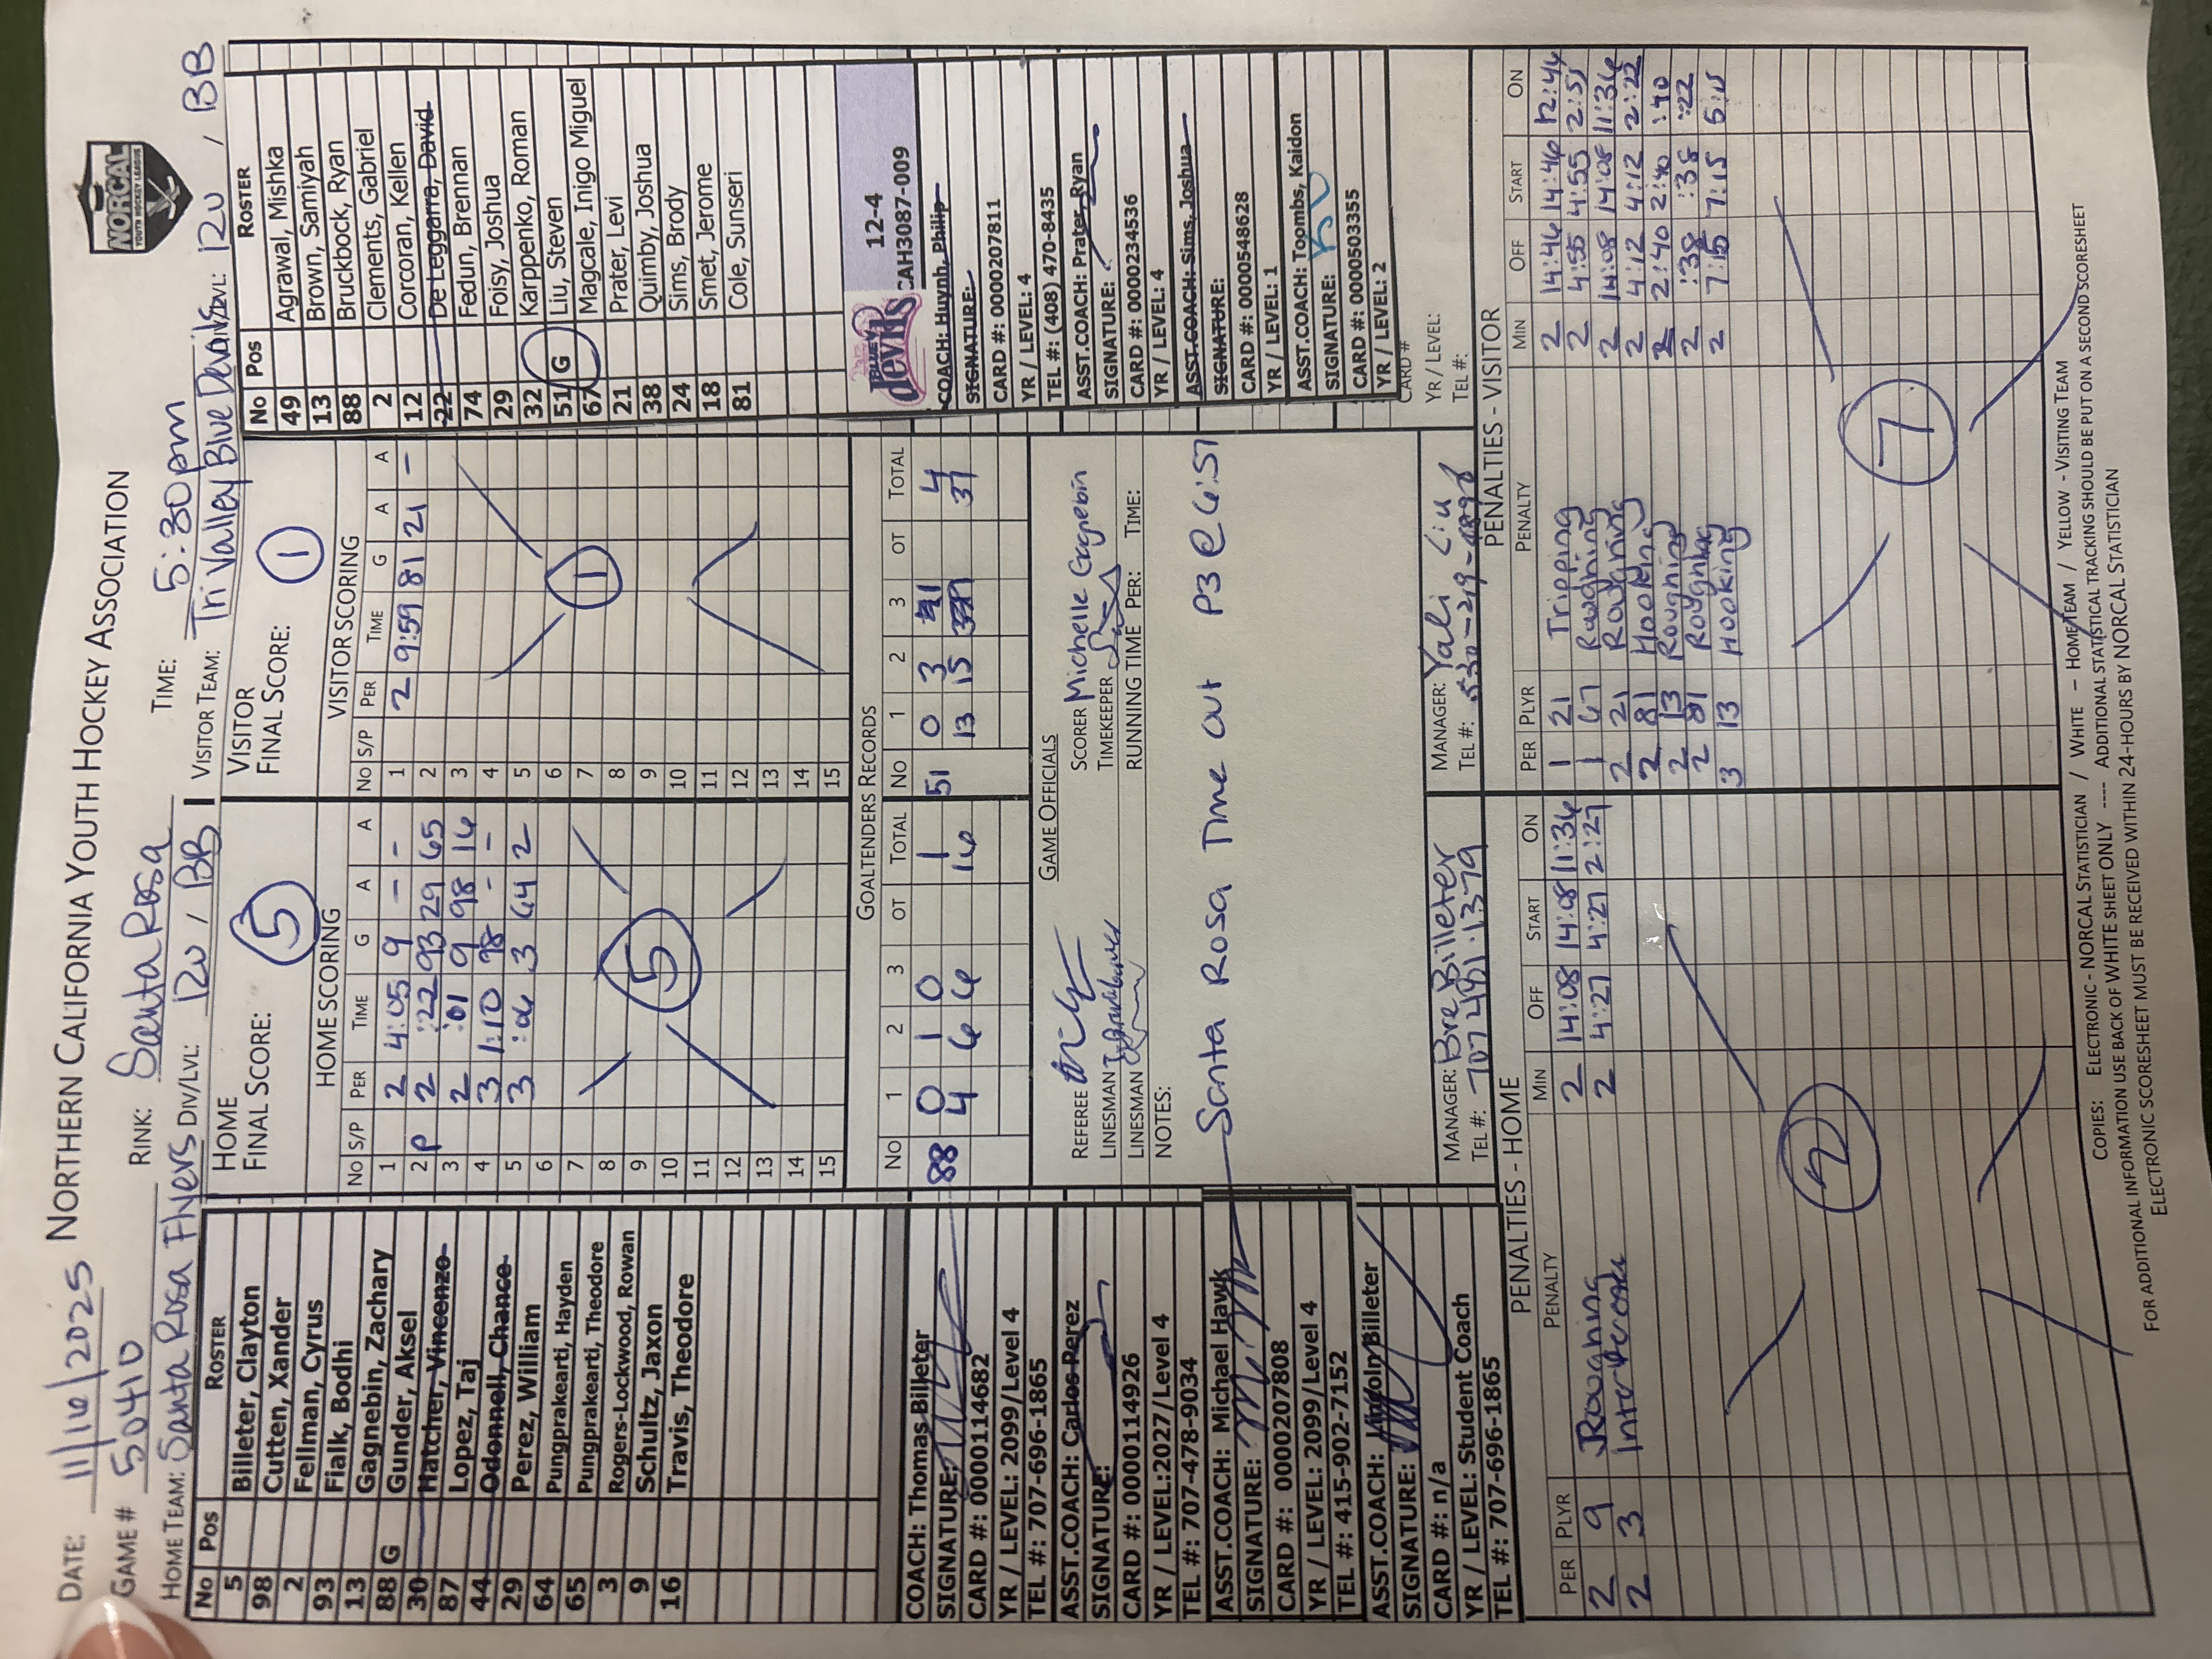 DATE: 11/16/2025 NORTHERN CALIFORNIA YOUTH HOCKEY ASSOCIATION
NORCAL
YOUTH HOCKEY LEAGUE
GAME # 50410 RINK: Santa Rosa TIME: 5:30pm
HOME TEAM: Santa Rosa Flyers DIV/LVL: 12U / BB VISITOR TEAM: Tri Valley Blue Devils DIV/LVL: 12U / BB
No Pos ROSTER
5 Billeter, Clayton
98 Cutten, Xander
2 Fellman, Cyrus
93 Fialk, Bodhi
13 Gagnebin, Zachary
88 G Gunder, Aksel
30 Hatcher, Vincenzo
87 Lopez, Taj
44 Odonnell, Chance
29 Perez, William
64 Pungprakearti, Hayden
65 Pungprakearti, Theodore
3 Rogers-Lockwood, Rowan
9 Schultz, Jaxon
16 Travis, Theodore
COACH: Thomas Billeter
SIGNATURE:
CARD #: 0000114682
YR / LEVEL: 2099/Level 4
TEL #: 707-696-1865
ASST.COACH: Carlos Perez
SIGNATURE:
CARD #: 0000114926
YR / LEVEL:2027/Level 4
TEL #: 707-478-9034
ASST.COACH: Michael Hawk
SIGNATURE:
CARD #: 0000207808
YR / LEVEL: 2099/Level 4
TEL #: 415-902-7152
ASST.COACH: Billeter
SIGNATURE:
CARD #: n/a
YR / LEVEL: Student Coach
TEL #: 707-696-1865
HOME
FINAL SCORE: 5
HOME SCORING
No S/P PER TIME G A A
1 2 4:05 9 - -
2 P 2 :22 93 29 65
3 2 :01 9 98 16
4 3 1:10 98 - -
5 3 :06 3 64 2
6
7
8
9
10
11
12
13
14
15
5
VISITOR
FINAL SCORE: 1
VISITOR SCORING
No S/P PER TIME G A A
1 2 9:59 81 21 -
2
3
4
5
6
7
8
9
10
11
12
13
14
15
1
GOALTENDERS RECORDS
No 1 2 3 OT TOTAL No 1 2 3 OT TOTAL
88 0 1 0 1 51 0 3 1 4
4 6 6 16 13 15 31
GAME OFFICIALS
REFEREE SCORER Michelle Gagnebin
LINESMAN TIMEKEEPER
LINESMAN RUNNING TIME PER: TIME:
NOTES:
Santa Rosa Time Out P3 @ 6:51
MANAGER: Bre Billeter
TEL #: 707 481 · 1379
MANAGER: Yali Liu
TEL #: 530-219-
No Pos ROSTER
49 Agrawal, Mishka
13 Brown, Samiyah
88 Bruckbock, Ryan
2 Clements, Gabriel
12 Corcoran, Kellen
22 De Leggarra, David
74 Fedun, Brennan
29 Foisy, Joshua
32 Karppenko, Roman
51 G Liu, Steven
67 Magcale, Inigo Miguel
21 Prater, Levi
38 Quimby, Joshua
24 Sims, Brody
18 Smet, Jerome
81 Cole, Sunseri
devils
12-4
CAH3087-009
COACH: Huynh, Philip
SIGNATURE:
CARD #: 0000207811
YR / LEVEL: 4
TEL #: (408) 470-8435
ASST.COACH: Prater, Ryan
SIGNATURE:
CARD #: 0000234536
YR / LEVEL: 4
ASST.COACH: Sims, Joshua
SIGNATURE:
CARD #: 0000548628
YR / LEVEL: 1
ASST.COACH: Toombs, Kaidon
SIGNATURE:
CARD #: 0000503355
YR / LEVEL: 2
CARD #
YR / LEVEL:
TEL #:
PENALTIES - HOME
PER PLYR PENALTY MIN OFF START ON
2 9 Roughing 2 14:08 14:08 11:36
2 3 Interference 2 4:27 4:27 2:27
2
PENALTIES - VISITOR
PER PLYR PENALTY MIN OFF START ON
1 21 Tripping 2 14:46 14:46 12:46
1 67 Roughing 2 4:55 4:55 2:55
2 21 Roughing 2 14:08 14:08 11:36
2 81 Hooking 2 4:12 4:12 2:22
2 13 Roughing 2 2:40 2:40 :40
2 81 Roughing 2 :38 :38 :22
3 13 Hooking 2 7:15 7:15 5:15
7
COPIES: ELECTRONIC - NORCAL STATISTICIAN / WHITE - HOME TEAM / YELLOW - VISITING TEAM
FOR ADDITIONAL INFORMATION USE BACK OF WHITE SHEET ONLY ---- ADDITIONAL STATISTICAL TRACKING SHOULD BE PUT ON A SECOND SCORESHEET
ELECTRONIC SCORESHEET MUST BE RECEIVED WITHIN 24-HOURS BY NORCAL STATISTICIAN